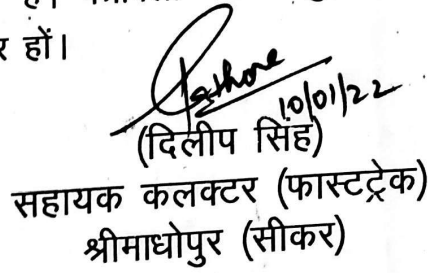 र हों।
Rathore
10/01/22
(दिलीप सिंह)
सहायक कलक्टर (फास्टट्रेक)
श्रीमाधोपुर (सीकर)